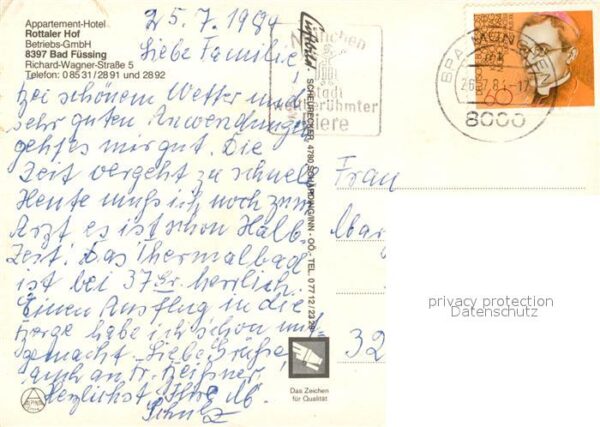 Appartement-Hotel
Rottaler Hof
Betriebs-GmbH
8397 Bad Füssing
Richard-Wagner-Straße 5
Telefon: 08531/2891 und 2892
25.7.1984
Liebe Familie,
bei schönem Wetter und
sehr guten Anwendungen
geht's mir gut. Die
Zeit vergeht zu schnell
Heute muß ich noch zum
Arzt es ist schon Halb-
zeit. Das Thermalbad
ist bei 37 Gr. herrlich.
Einen Ausflug in die
Berge habe ich schon mit
gemacht. Liebe Grüße
auch an Fr.
Herzlichst Ihre M.
Schulz
München
Stadt
weltberühmter
Biere
8000 MÜNCHEN
26.7.84-17
60
SCHEURECKER, 4780 SCHÄRDING/INN - OÖ. - TEL. 07712/23 28
Frau
Mar
32
Das Zeichen
für Qualität
privacy protection
Datenschutz